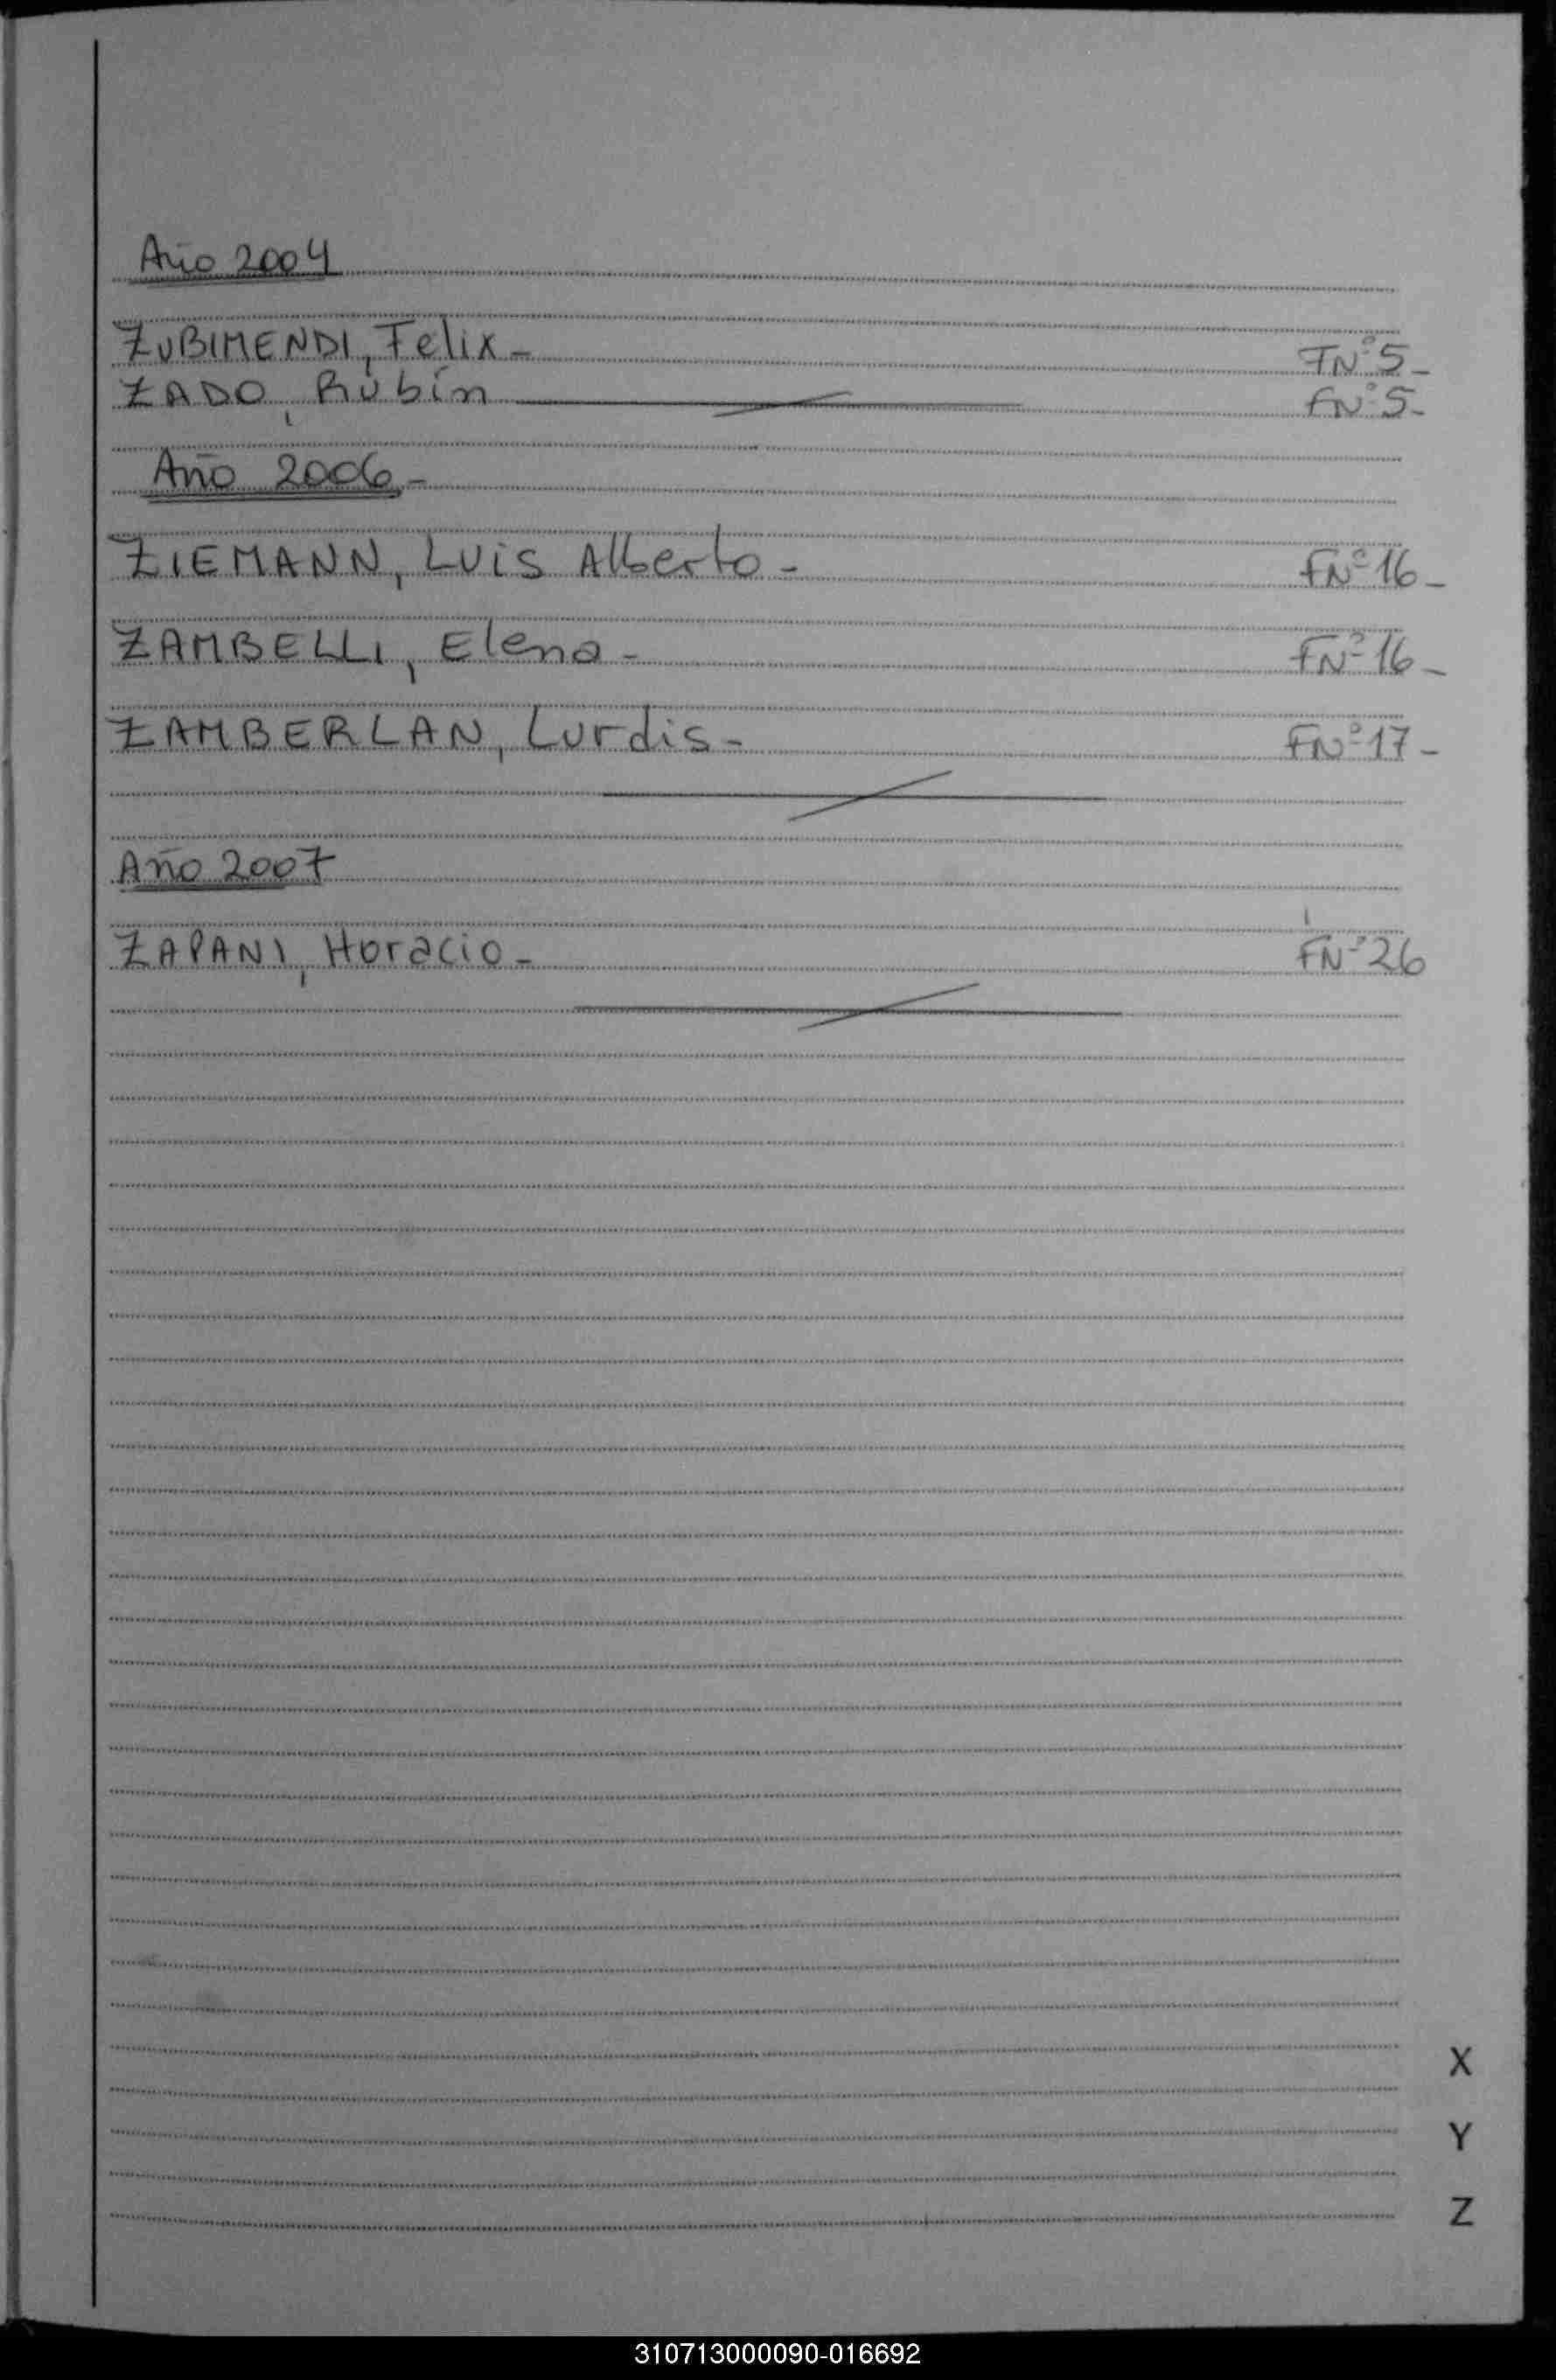 Año 2004
ZUBIMENDI, Felix - FNº 5 -
ZADO, Rubín FNº 5 -
Año 2006 -
ZIEMANN, Luis Alberto - FNº 16 -
ZAMBELLI, Elena - FNº 16 -
ZAMBERLAN, Lurdis - FNº 17 -
Año 2007
ZAPANI, Horacio - FNº 26
X
Y
Z
310713000090-016692